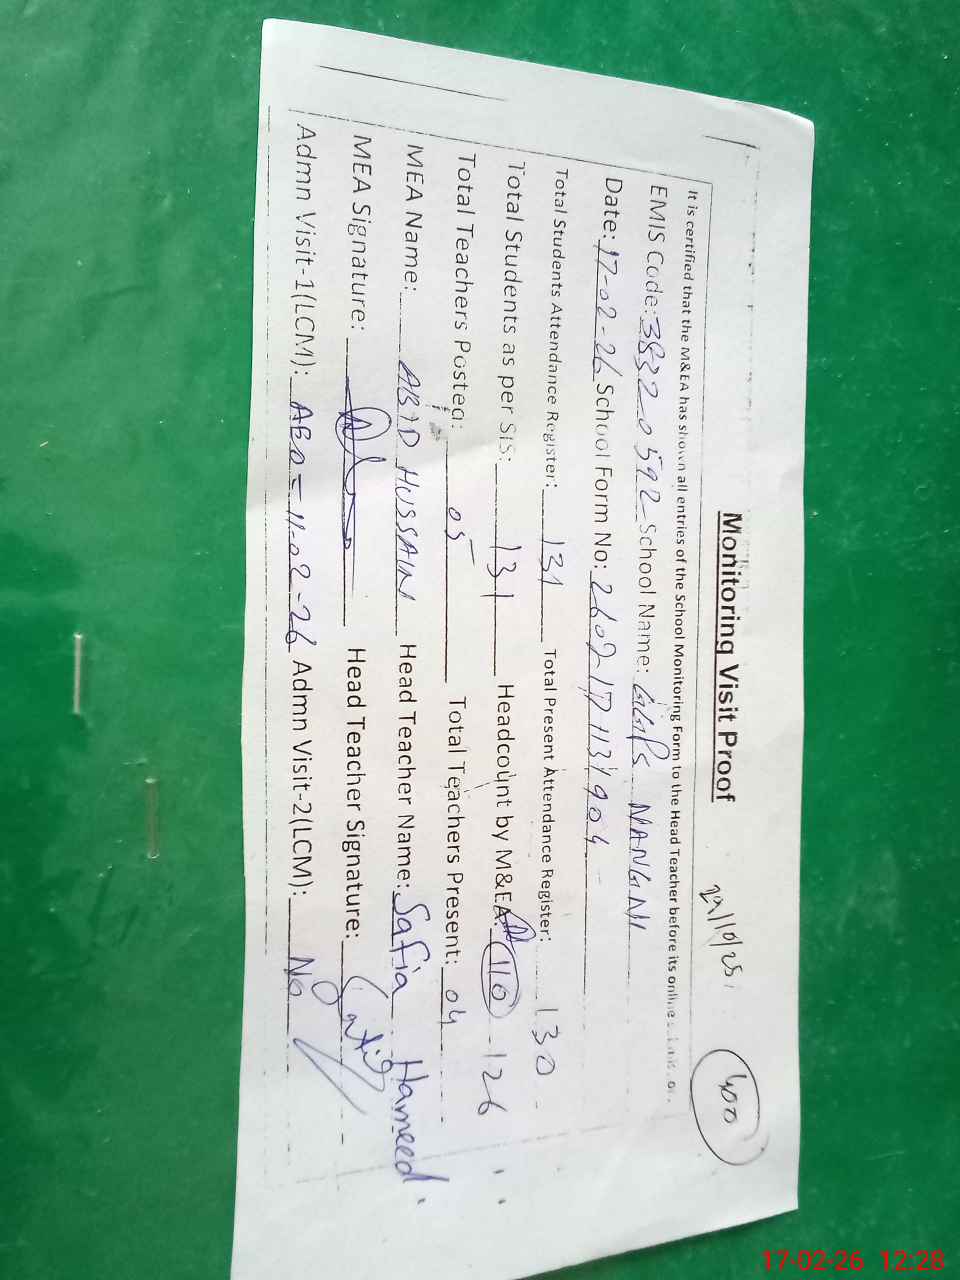 Monitoring Visit Proof
400
It is certified that the M&EA has shown all entries of the School Monitoring Form to the Head Teacher before its online
EMIS Code: 38320592 School Name: GGPS NANGNI
Date: 17-02-26 School Form No: 2602171131904
Total Students Attendance Register: 131 Total Present Attendance Register: 130
Total Students as per SIS: 131 Headcount by M&EA: 110 126
Total Teachers Posted: 05 Total Teachers Present: 04
MEA Name: ABID HUSSAIN Head Teacher Name: Safia Hameed
MEA Signature: Head Teacher Signature:
Admn Visit-1(LCM): AEO = 11-02-26 Admn Visit-2(LCM): No
17-02-26 12:28